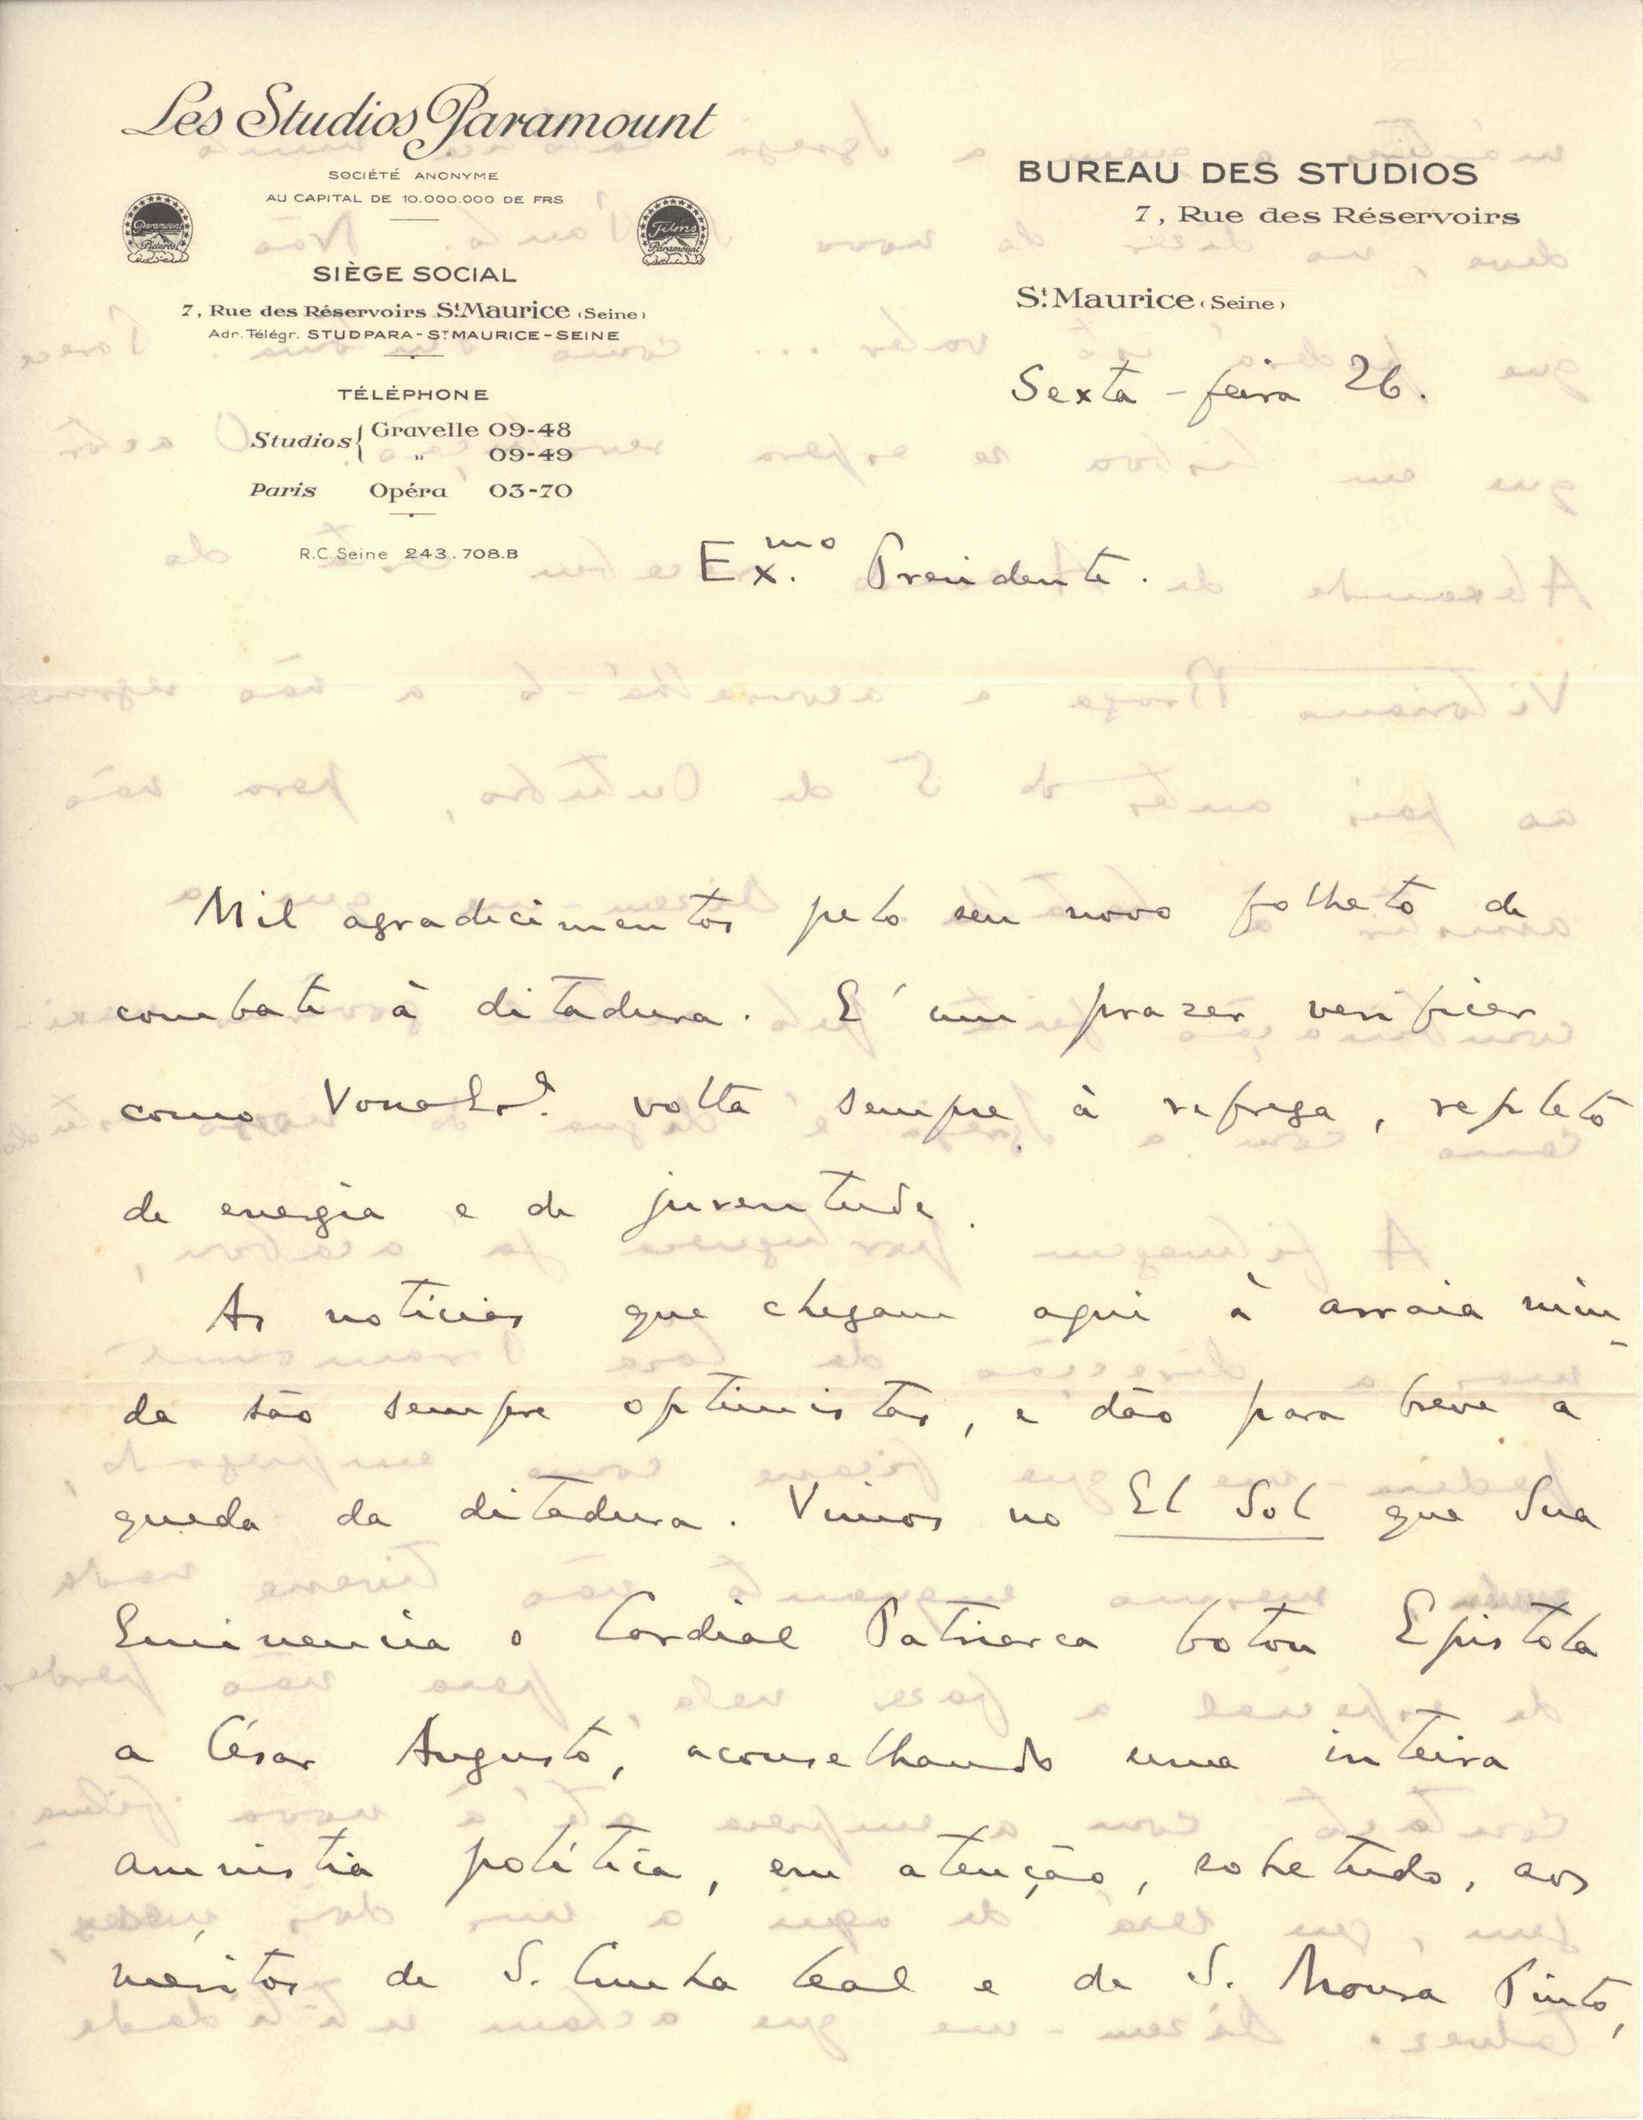 Les Studios Paramount
SOCIÉTÉ ANONYME
AU CAPITAL DE 10.000.000 DE FRS
Paramount Pictures
Films Paramount
SIÈGE SOCIAL
7, Rue des Réservoirs St Maurice (Seine)
Adr. Télégr. STUDPARA-ST MAURICE-SEINE
TÉLÉPHONE
Studios { Gravelle 09-48
" 09-49
Paris Opéra 03-70
R.C. Seine 243.708.B
BUREAU DES STUDIOS
7, Rue des Réservoirs
St Maurice (Seine)
Sexta-feira 26.
Ex.mo Presidente.
Mil agradecimentos pelo seu novo folheto de
combate à ditadura. E' um prazer verificar
como Você volta sempre à refrega, repleto
de energia e de juventude.
As notícias que chegam aqui à arraia miú-
da são sempre optimistas, e dão para breve a
queda da ditadura. Vimos no El Sol que Sua
Eminencia o Cardial Patriarca botou Epistola
a César Augusto, aconselhando uma inteira
amnistia política, em atenção, sobretudo, aos
méritos de S. Cunha Leal e de S. Moura Pinto,